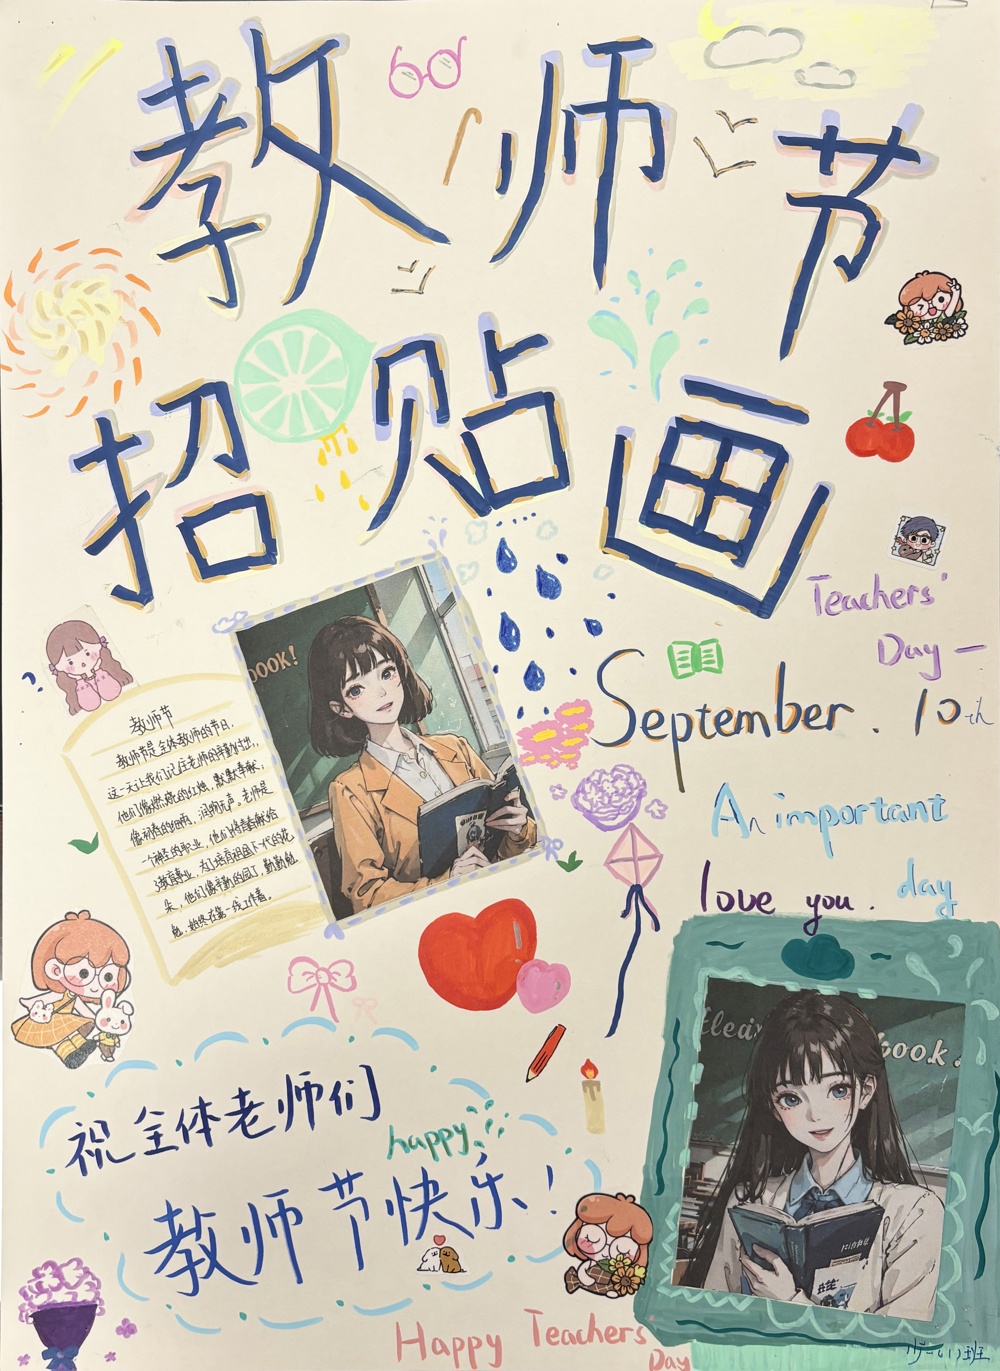 教师节
招贴画
Teachers'
Day —
September. 10th
An important
day
love you.
book!
教师节
教师节是全体教师的节日,
这一天让我们记住老师的辛勤付出,
他们像燃烧的红烛,默默奉献,
像初春的细雨,润物无声。老师是
一个神圣的职业,他们将青春献给
了教育事业,为了培育祖国下一代的花
朵,他们像辛勤的园丁,勤勤勉
勉,始终在第一线工作着。
book.
祝全体老师们
happy
教师节快乐!
Happy Teachers
Day